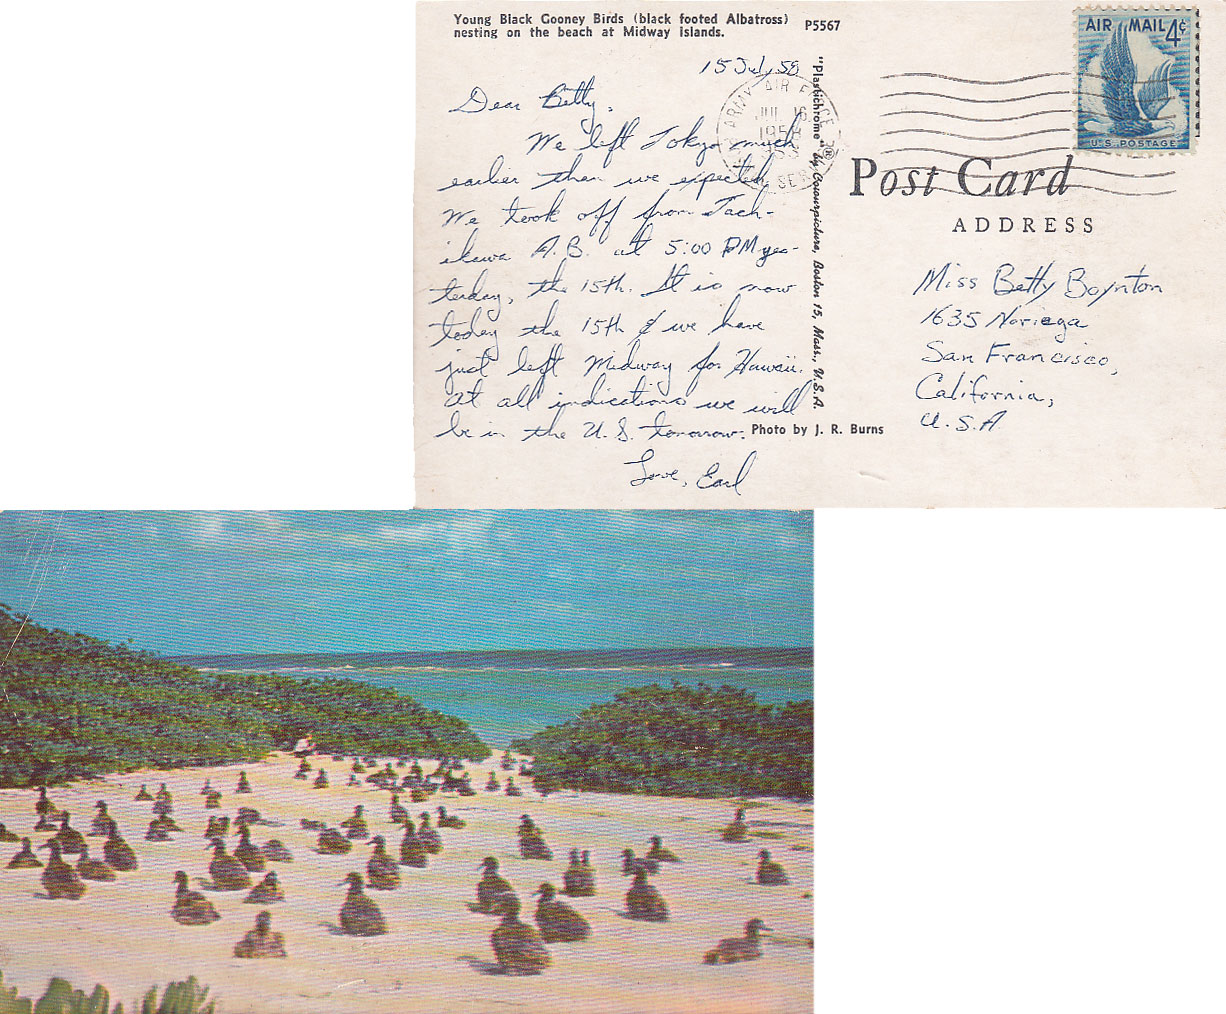 Young Black Gooney Birds (black footed Albatross)
nesting on the beach at Midway Islands.
P5567
15 July 58
Dear Betty,
We left Tokyo much
earlier than we expected.
We took off from Tach-
ikawa A.B. at 5:00 PM yes-
terday, the 15th. It is now
today the 15th & we have
just left Midway for Hawaii.
At all indications we will
be in the U.S. tomorrow.
Love, Earl
"Plastichrome" ® by Colourpicture, Boston 15, Mass., U.S.A.
Photo by J. R. Burns
ARMY AIR FORCE
JUL 16
1958
SERV
AIR MAIL 4¢
U.S. POSTAGE
Post Card
ADDRESS
Miss Betty Boynton
1635 Noriega
San Francisco,
California,
U.S.A